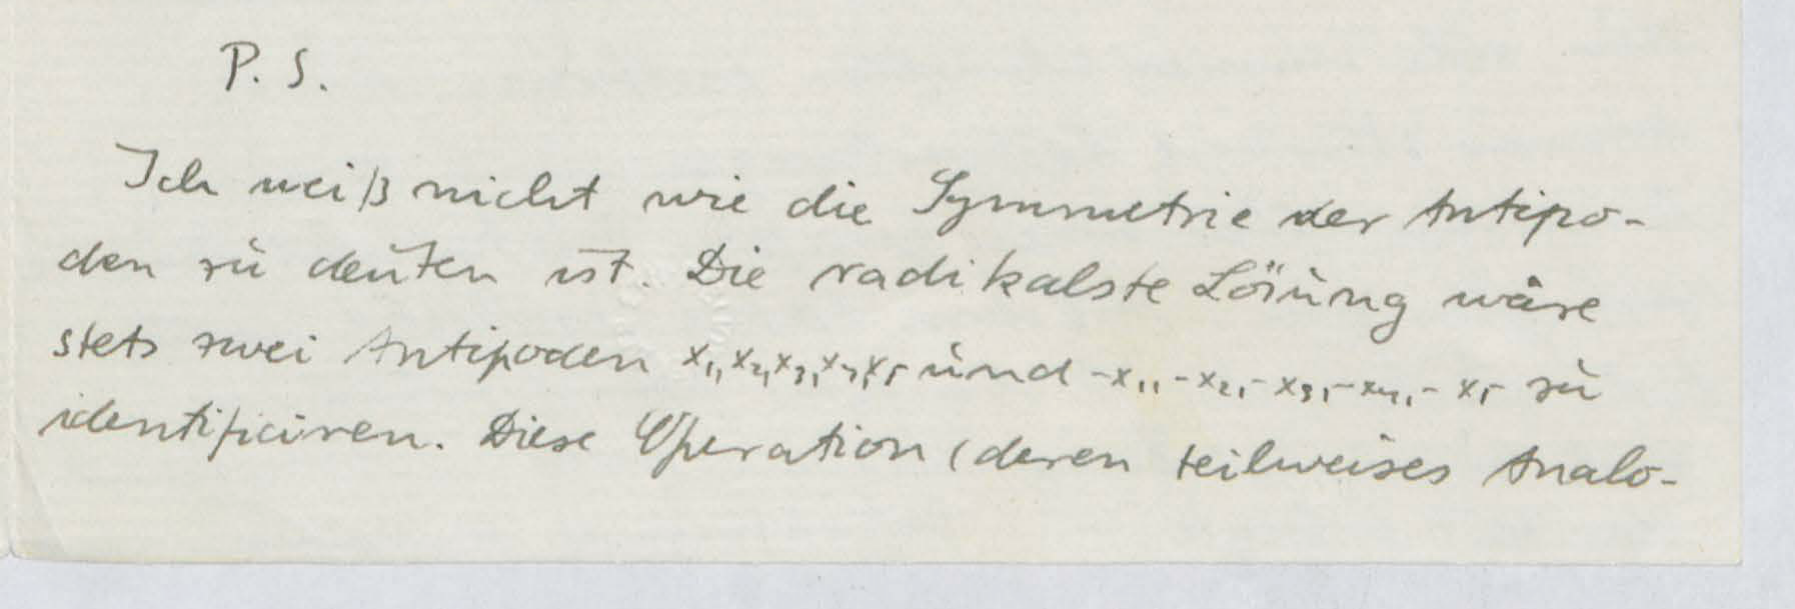 P. S.
Ich weiß nicht wie die Symmetrie der Antipo-
den zu deuten ist. Die radikalste Lösung wäre
stets zwei Antipoden x₁, x₂, x₃, x₄, x₅ und -x₁, -x₂, -x₃, -x₄, -x₅ zu
identificiren. Diese Operation (deren teilweises Analo-